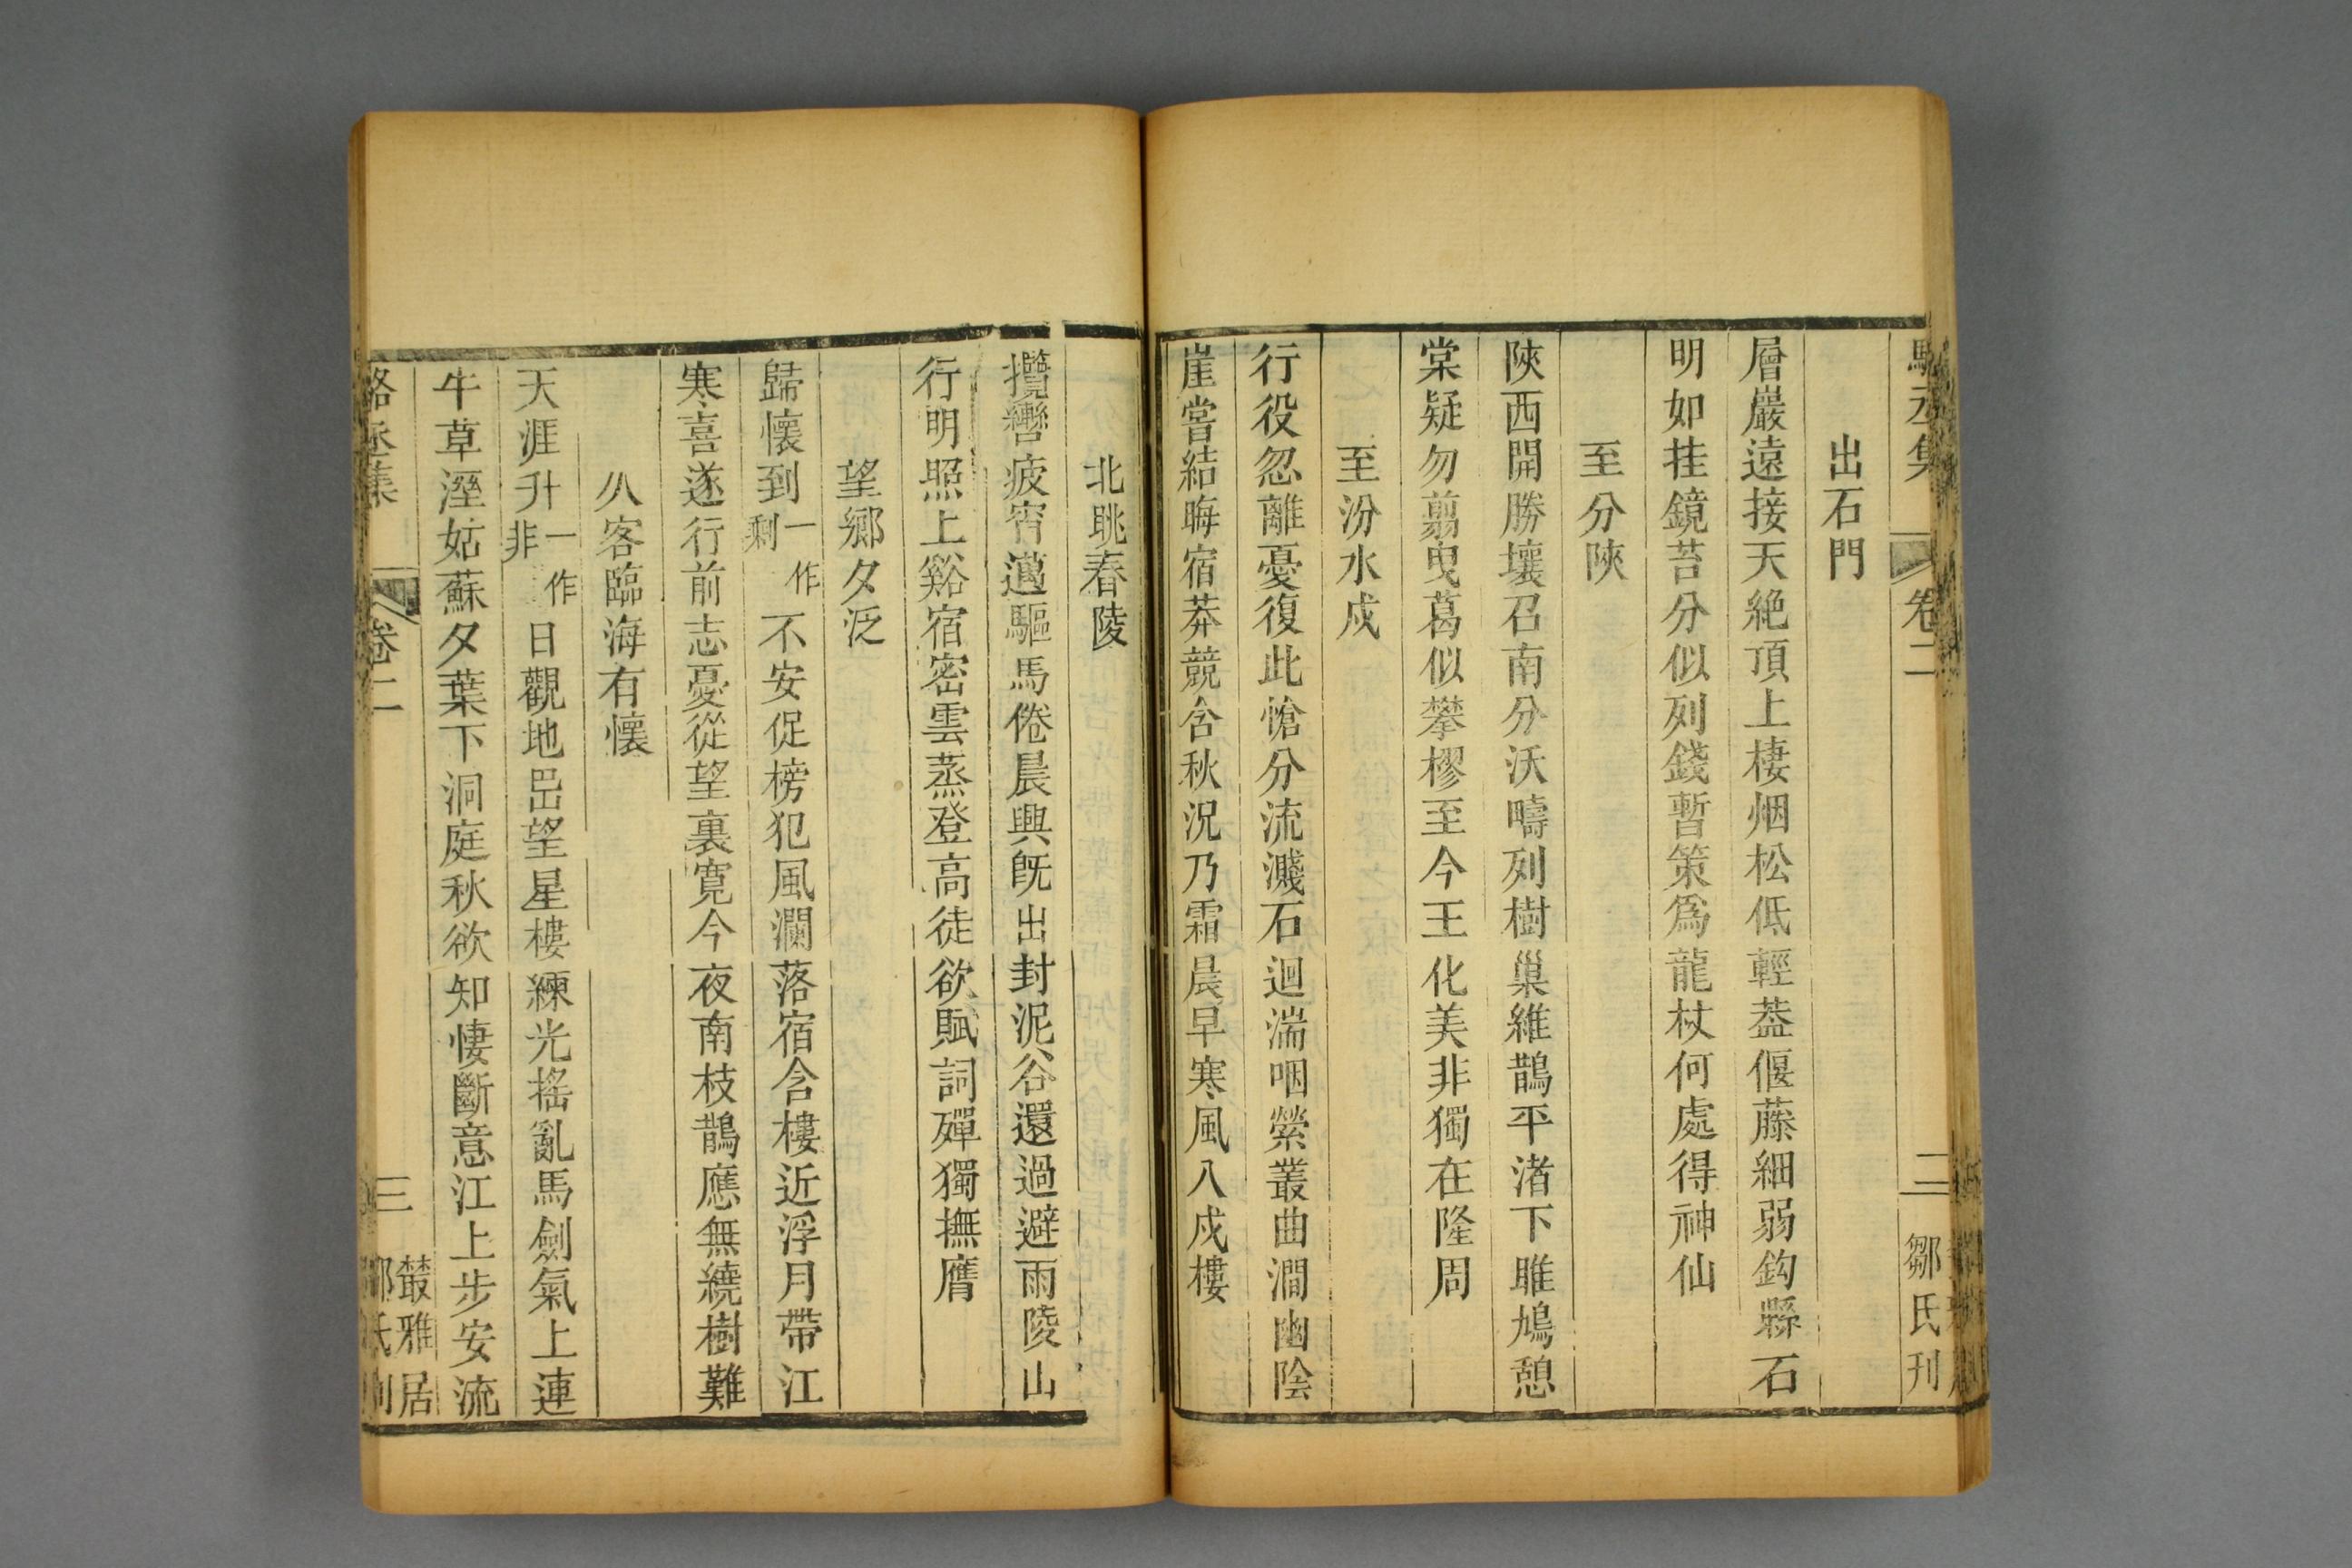 駱丞集 卷二 二 鄒氏刊
出石門
層巖遠接天絶頂上棲烟松低輕葢偃藤細弱鈎縣石
明如挂鏡苔分似列錢暫策爲龍杖何處得神仙
至分陜
陜西開勝壤召南分沃疇列樹巢維鵲平渚下雎鳩憩
棠疑勿翦曳葛似攀樛至今王化美非獨在隆周
至汾水戍
行役忽離憂復此愴分流濺石迴湍咽縈叢曲澗幽陰
崖嘗結晦宿莽競含秋況乃霜晨早寒風入戍樓
北眺舂陵
攬轡疲宵邁驅馬倦晨興旣出封泥谷還過避雨陵山
行明照上谿宿密雲蒸登高徒欲賦詞殫獨撫膺
望鄉夕泛
歸懷到一作剩不安促榜犯風瀾落宿含樓近浮月帶江
寒喜逐行前志憂從望裏寬今夜南枝鵲應無繞樹難
久客臨海有懷
天涯升一作非日觀地岊望星樓練光搖亂馬劍氣上連
牛草溼姑蘇夕葉下洞庭秋欲知悽斷意江上步安流
駱丞集 卷二 三 叢雅居鄒氏刊